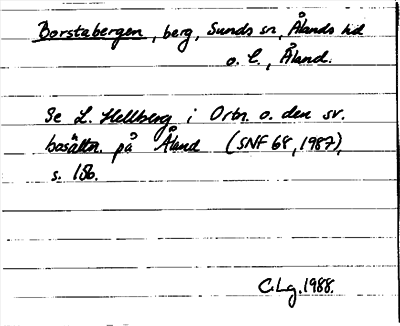 Borstabergen, berg, Sunds sn, Ålands hd
o. l., Åland.
Se L. Hellberg i Ortn. o. den sv.
bosättn. på Åland (SNF 68, 1987),
s. 186.
C.Lg. 1988.